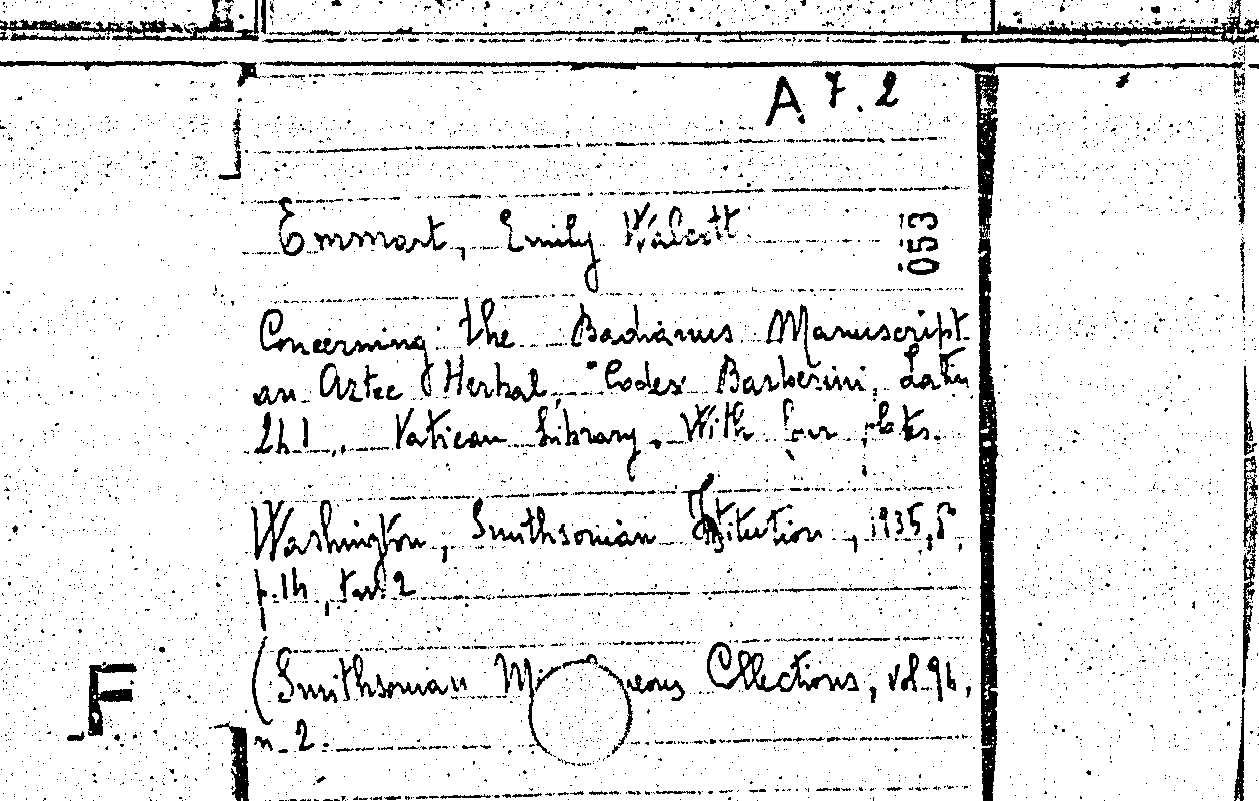 A 7.2
Emmart, Emily Walcott.
053
Concerning the Badianus Manuscript
an Aztec Herbal, "Codex Barberini, Latin
241", Vatican Library. With four plates.
Washington, Smithsonian Institution, 1935, 8°,
p. 14, tav. 2
(Smithsonian Collections, vol. 94,
n. 2.
F